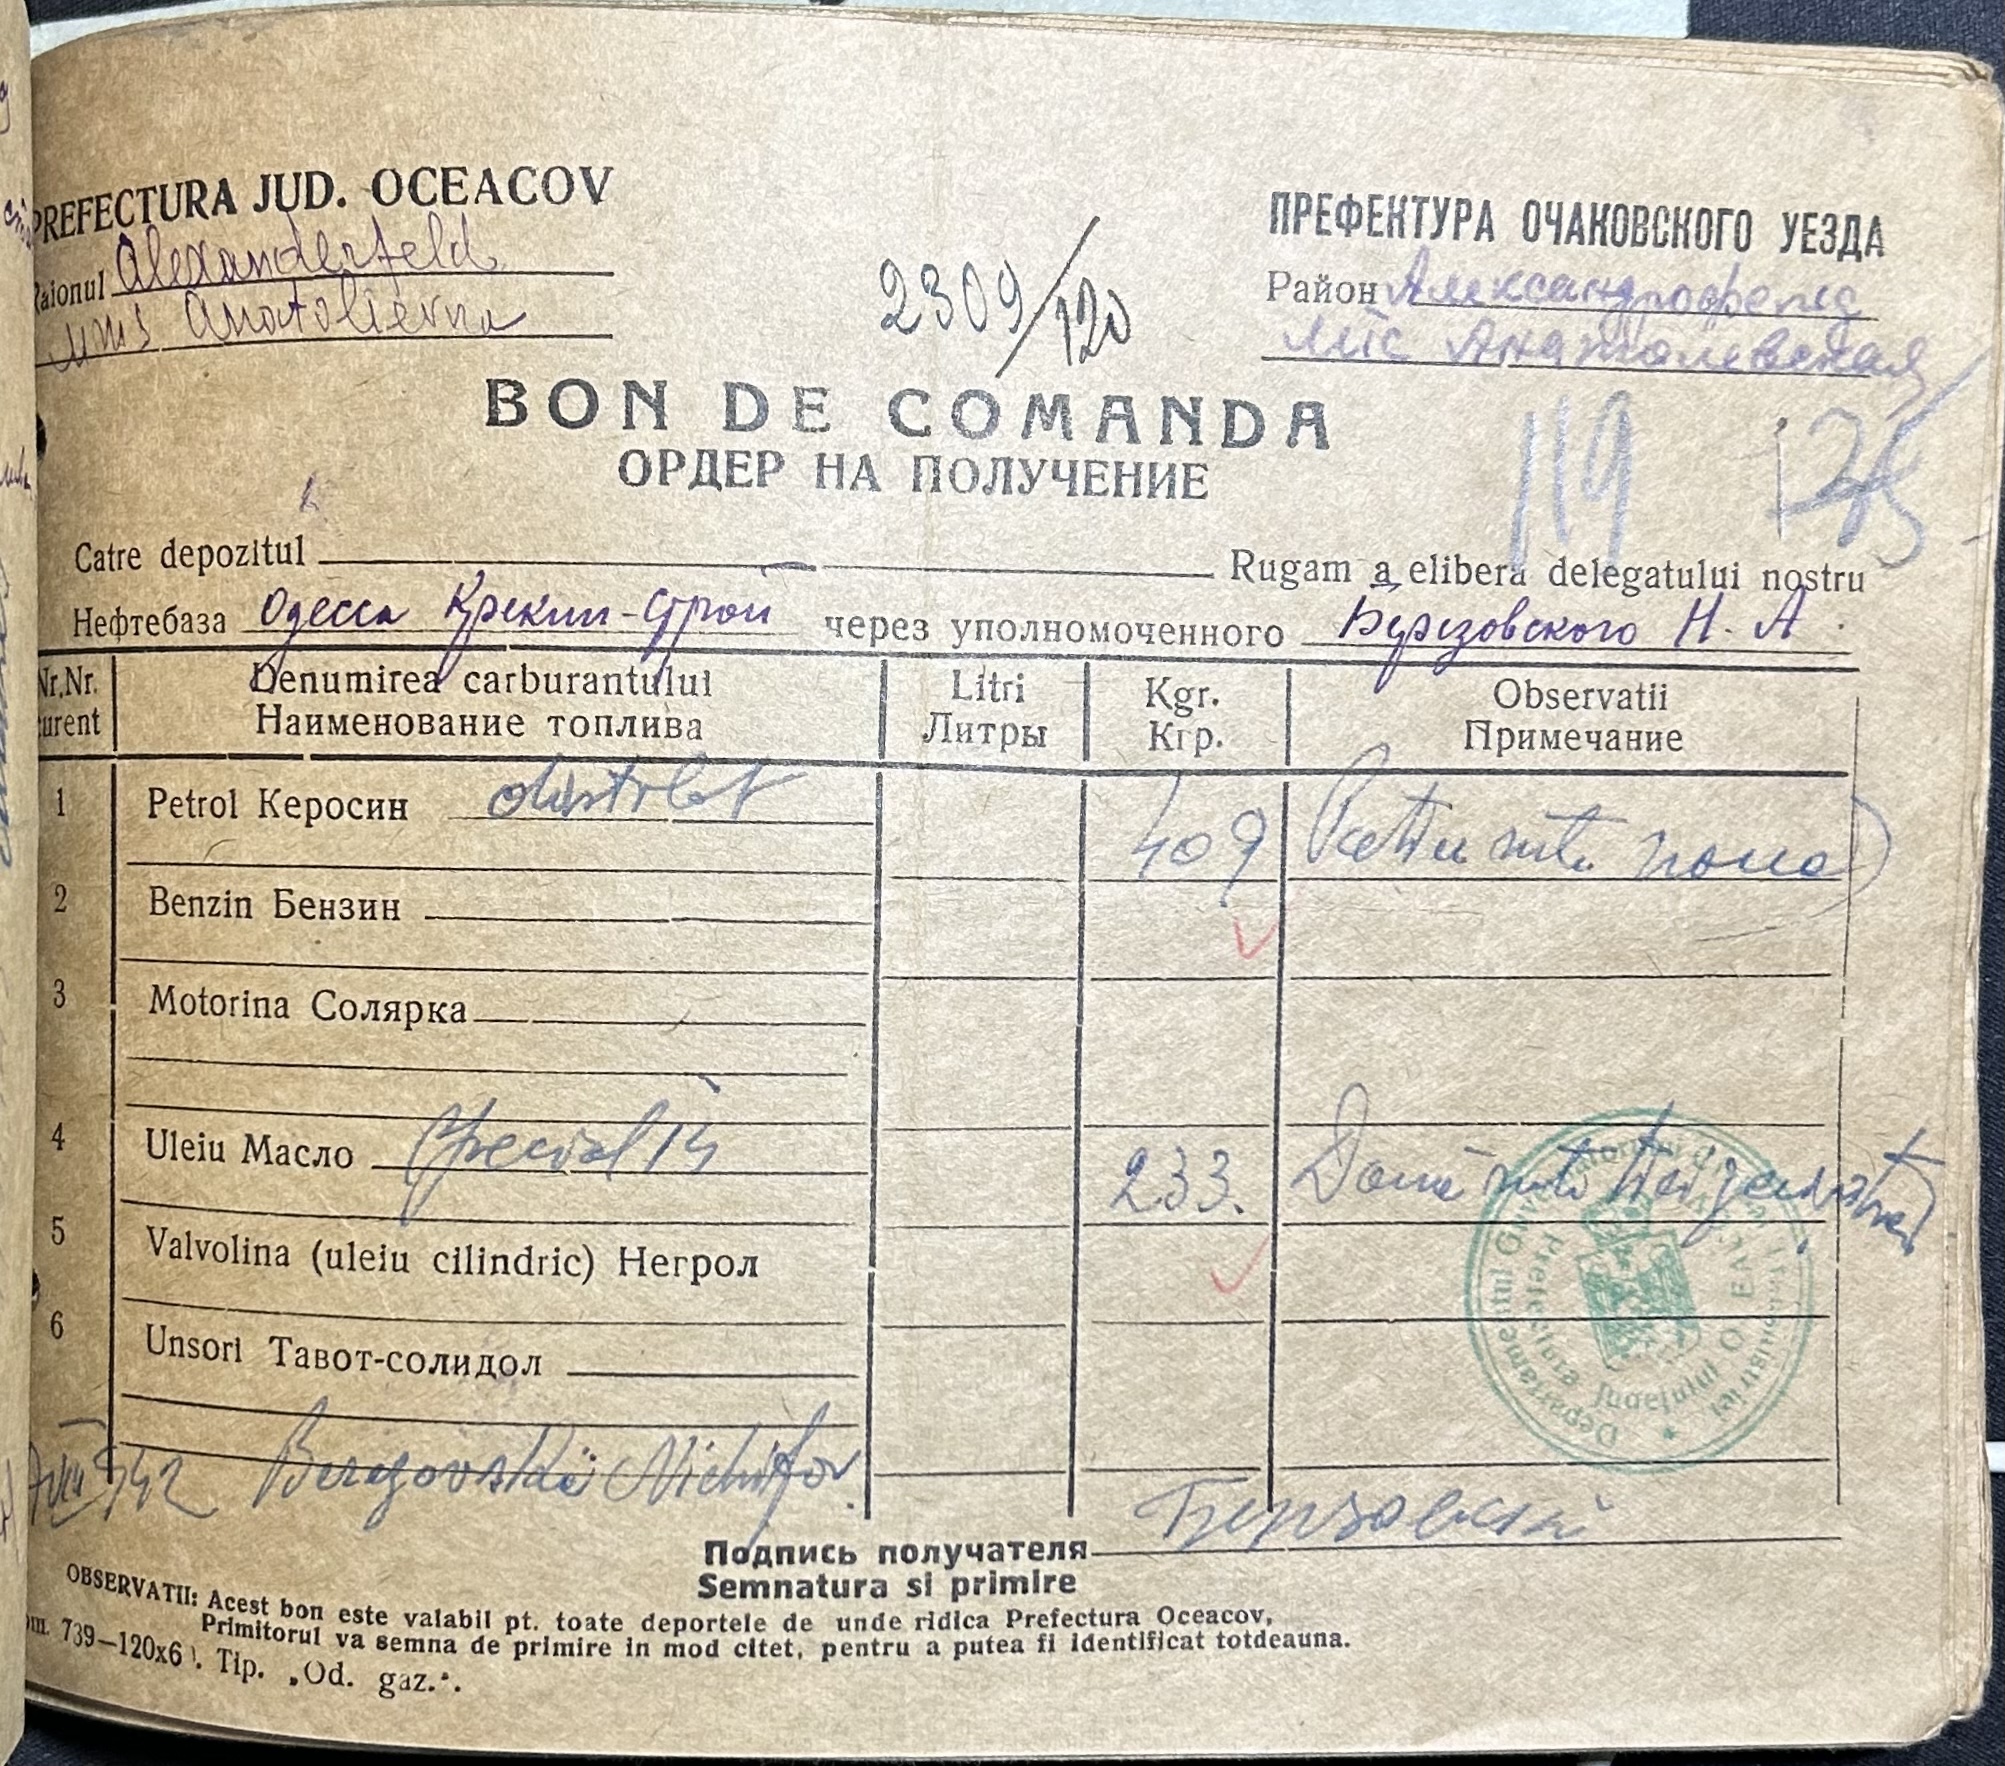 PREFECTURA JUD. OCEACOV
Raionul Alexanderfeld
Anatolievna
2309/120
ПРЕФЕКТУРА ОЧАКОВСКОГО УЕЗДА
Район Александрофельд
мтс Анатолевская
BON DE COMANDA
ОРДЕР НА ПОЛУЧЕНИЕ
119
Catre depozitul
Rugam a elibera delegatului nostru
Нефтебаза Одесса Крекин-Строй через уполномоченного Березовского Н. А.
Nr.Nr. curent
Denumirea carburantului
Наименование топлива
Litri
Литры
Kgr.
Кгр.
Observatii
Примечание
1 Petrol Керосин distrlat 409 Patru sute noua
2 Benzin Бензин
3 Motorina Солярка
4 Uleiu Масло Special 233. Doua sute
5 Valvolina (uleiu cilindric) Негрол
6 Unsori Тавот-солидол
Departamentul Guvernatorului
Prefectura Judeţului OCEACOV
942 Berezovski Nichifor
Подпись получателя Березовский
Semnatura si primire
OBSERVATII: Acest bon este valabil pt. toate deportele de unde ridica Prefectura Oceacov,
Primitorul va semna de primire in mod citet, pentru a putea fi identificat totdeauna.
739—120x6 . Tip. „Od. gaz.“.